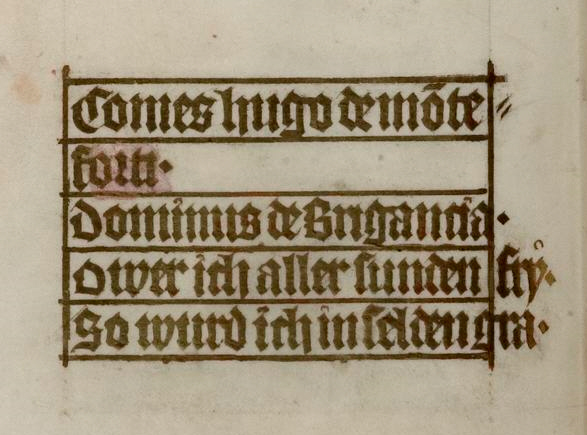 Comes hugo de mōte
forti·
Dominus de Brigancia·
O wer ich aller sunden fry·
So wurd ich in selden gra·